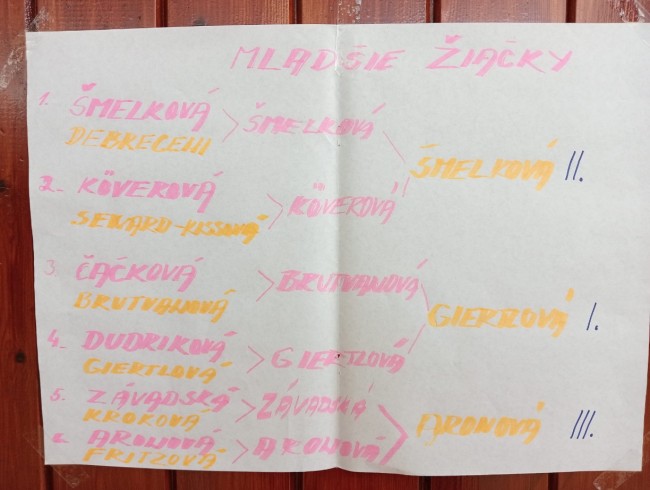 MLADŠIE ŽIAČKY
1. ŠMELKOVÁ
DEBRECENI
ŠMELKOVÁ
ŠMELKOVÁ II.
2. KÖVEROVÁ
SEWARD-KISSOVÁ
KÖVEROVÁ
3. ČAČKOVÁ
BRUTVANOVÁ
BRUTVANOVÁ
GIERTLOVÁ I.
4. DUDRIKOVÁ
GIERTLOVÁ
GIERTLOVÁ
5. ZÁVADSKÁ
KROKOVÁ
ZÁVADSKÁ
ARONOVÁ III.
6. ARONOVÁ
FRITZOVÁ
ARONOVÁ